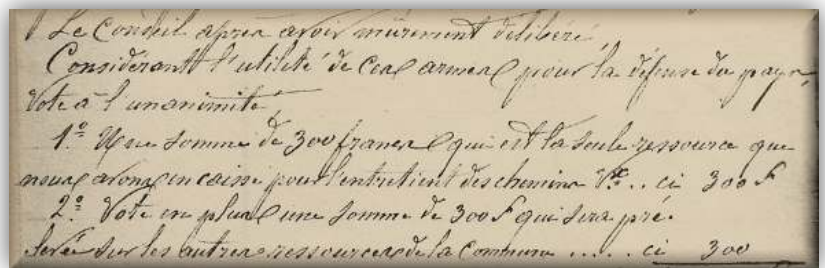 Le Conseil après avoir mûrement délibéré,
Considérant l'utilité de ces armes pour la défense du pays,
Vote à l'unanimité,
1.º Une somme de 300 francs qui est la seule ressource que
nous avons en caisse pour l'entretient des chemins V.ux .. ci 300 F
2.º Vote en plus une somme de 300 F qui sera pré-
levée sur les autres ressources de la Commune ..... ci 300